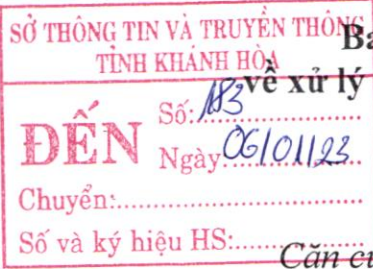 SỞ THÔNG TIN VÀ TRUYỀN THÔNG
TỈNH KHÁNH HÒA
Ba
về xử lý
ĐẾN
Số: 183
Ngày: 06/01/23
Chuyển:
Số và ký hiệu HS:
Căn cứ